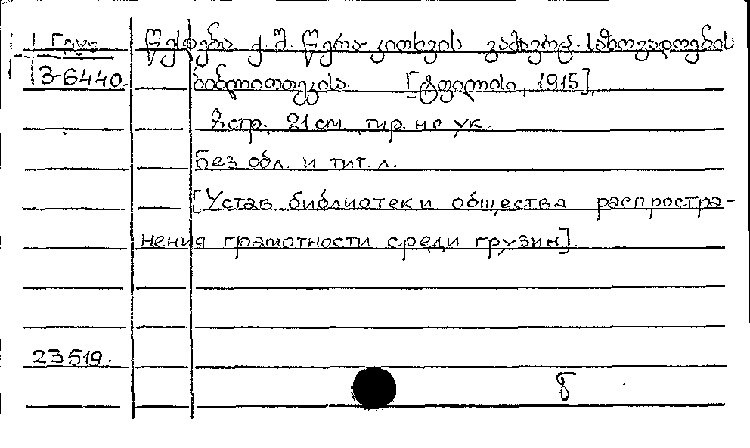 1 Груз. წესდება ქ. შ. წერა-კითხვის გამავრც. საზოგადოების
3-6440. ბიბლიოთეკისა. [ტფილისი, 1915].
8 стр. 21 см. тир. не ук.
Без обл. и тит. л.
[Устав библиотеки общества распростра-
нения грамотности среди грузин].
23519.